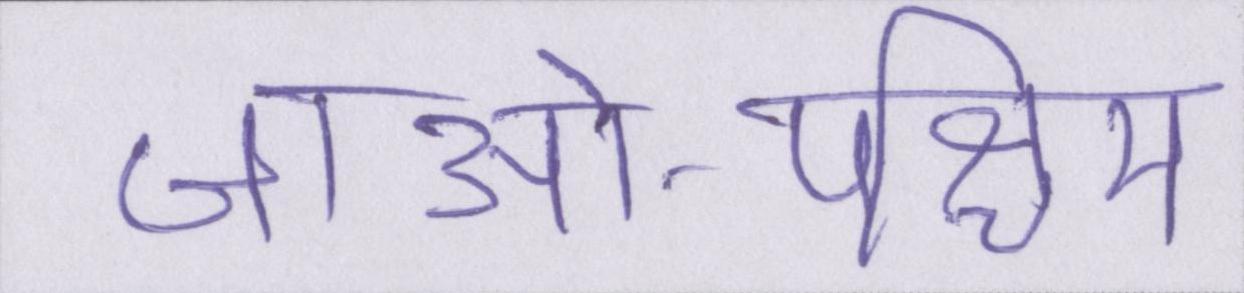 जाओ-पश्चिम